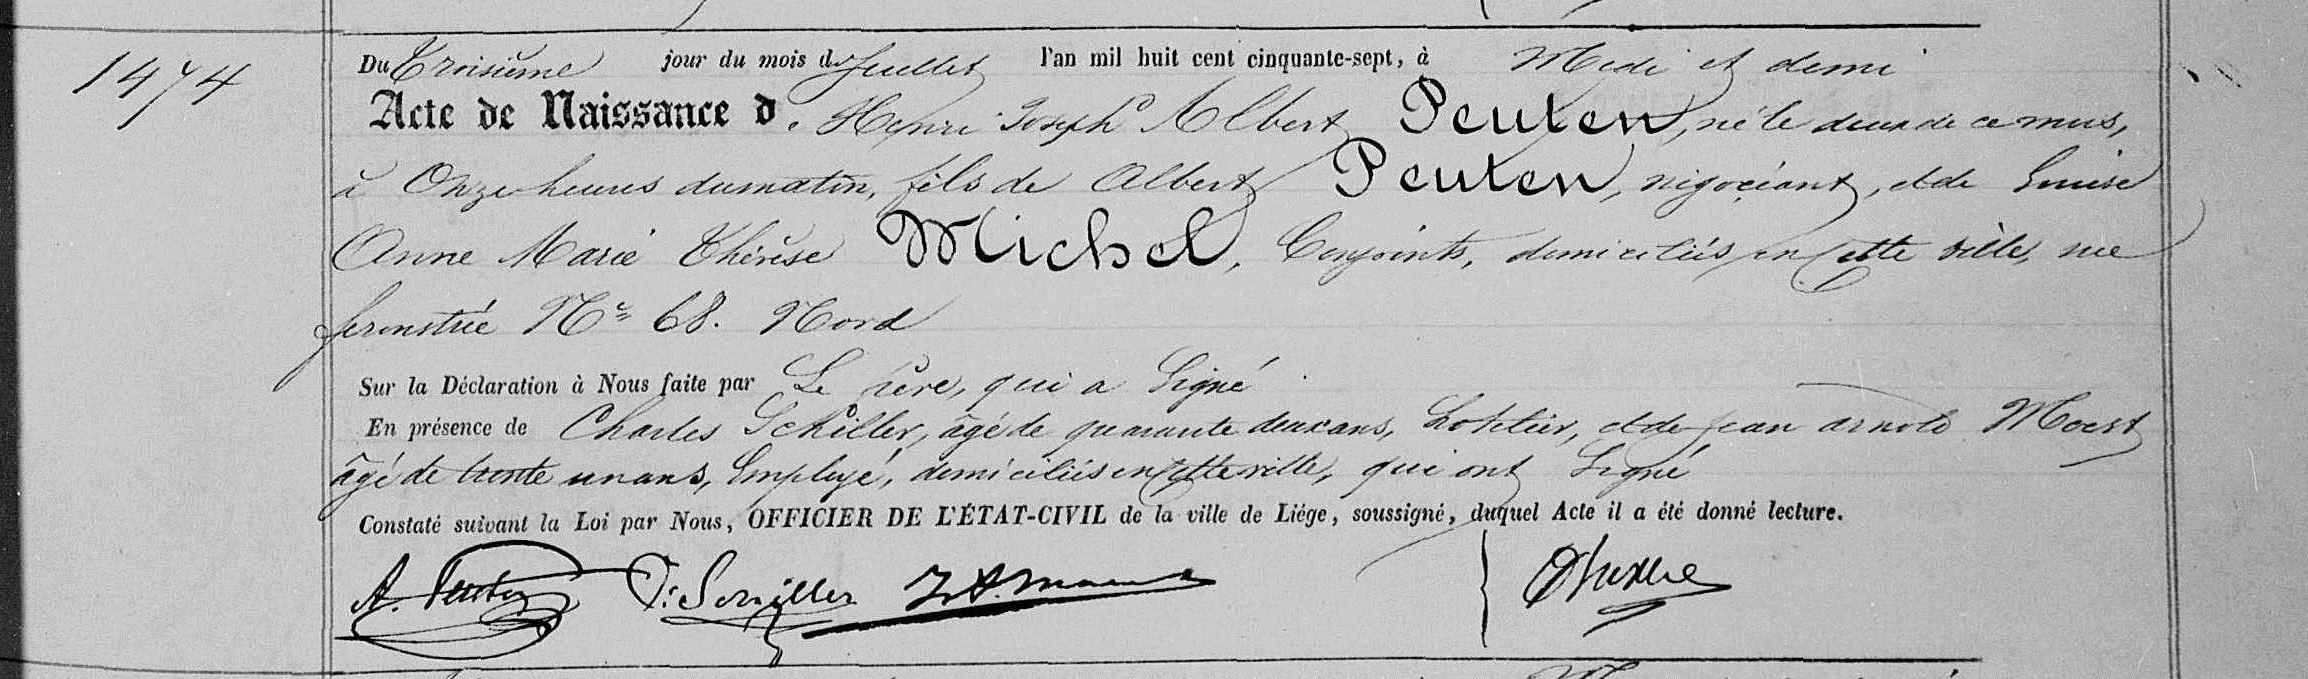 1474
Du Troisième jour du mois de Juillet l'an mil huit cent cinquante-sept, à Midi et demi
Acte de Naissance d. Henri Joseph Albert Peuten, né le deux de ce mois,
à Onze heures du matin, fils de Albert Peuten, négociant, et de Louise
Anne Marie Thérèse Michel, Conjoints, domiciliés en cette ville, rue
feronstrée N° 68. Nord
Sur la Déclaration à Nous faite par Le Père, qui a Signé
En présence de Charles Schiller, âgé de quarante deux ans, et de jean arnold
âgé de trente un ans, Employé, domiciliés en cette ville, qui ont Signé
Constaté suivant la Loi par Nous, OFFICIER DE L'ÉTAT-CIVIL de la ville de Liége, soussigné, duquel Acte il a été donné lecture.
A. Peuten